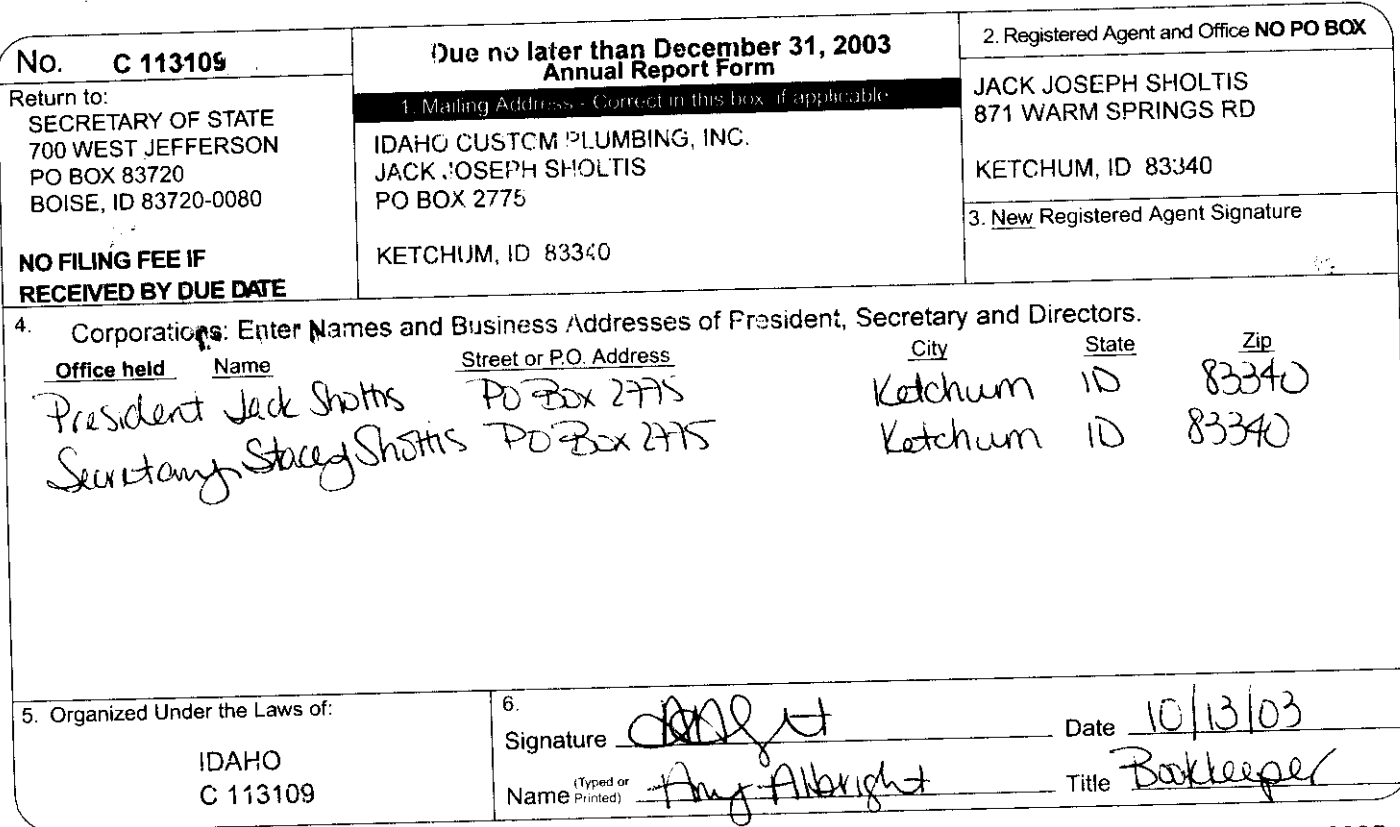 No. C 113109
Return to:
SECRETARY OF STATE
700 WEST JEFFERSON
PO BOX 83720
BOISE, ID 83720-0080
NO FILING FEE IF
RECEIVED BY DUE DATE
Due no later than December 31, 2003
Annual Report Form
1. Mailing Address - Correct in this box if applicable
IDAHO CUSTOM PLUMBING, INC.
JACK JOSEPH SHOLTIS
PO BOX 2775
KETCHUM, ID 83340
2. Registered Agent and Office NO PO BOX
JACK JOSEPH SHOLTIS
871 WARM SPRINGS RD
KETCHUM, ID 83340
3. New Registered Agent Signature
4. Corporations: Enter Names and Business Addresses of President, Secretary and Directors.
Office held Name Street or P.O. Address City State Zip
President Jack Sholtis PO Box 2775 Ketchum ID 83340
Secretary Stacey Sholtis PO Box 2775 Ketchum ID 83340
5. Organized Under the Laws of:
IDAHO
C 113109
6.
Signature Date 10/13/03
Name (Typed or Printed) Amy Albright Title Bookkeeper